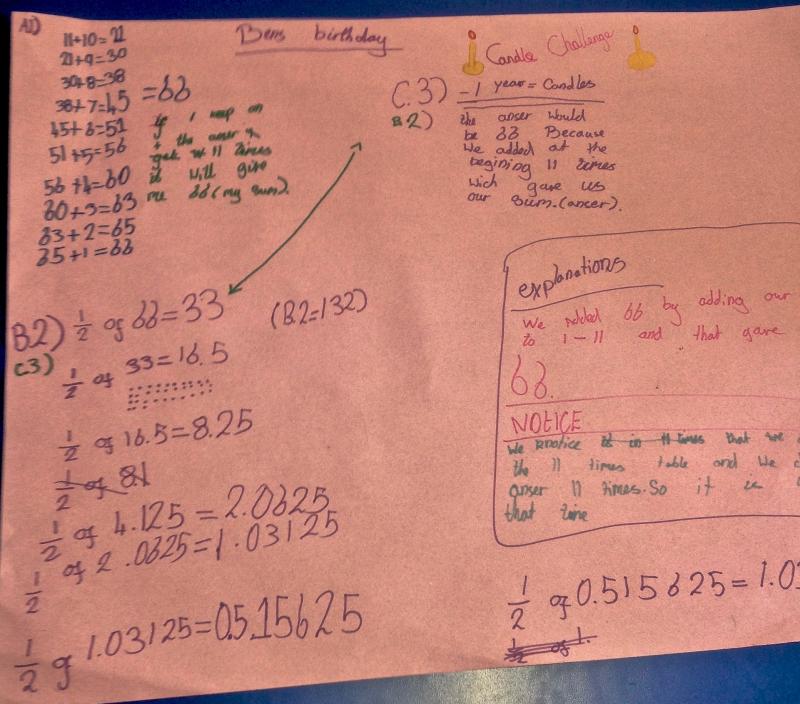 A1)
11+10=21
21+9=30
30+8=38
38+7=45 =66
45+6=51
51+5=56
56+4=60
60+3=63
63+2=65
65+1=66
if I keep on
+ the anser
get 11 times
it will give
me 66 (my sum).
Bens birthday
Candle Challenge
C.3) -1 year = Candles
B2)
the anser would
be 66 Because
We added at the
begining 11 times
wich gave us
our sum.(anser).
B.2) 1/2 of 66=33 (B.2=132)
C.3)
1/2 of 33=16.5
1/2 of 16.5=8.25
1/2 of 81
1/2 of 4.125=2.0625
1/2 of 2.0625=1.03125
1/2 of 1.03125=0.515625
explanations
We added 66 by adding our
to 1-11 and that gave
66.
NOtICE
We knotice it in 11 times that we
the 11 times table and We
anser 11 times. So it is
that time
1/2 of 0.515625=1.03
1/2 of 1.